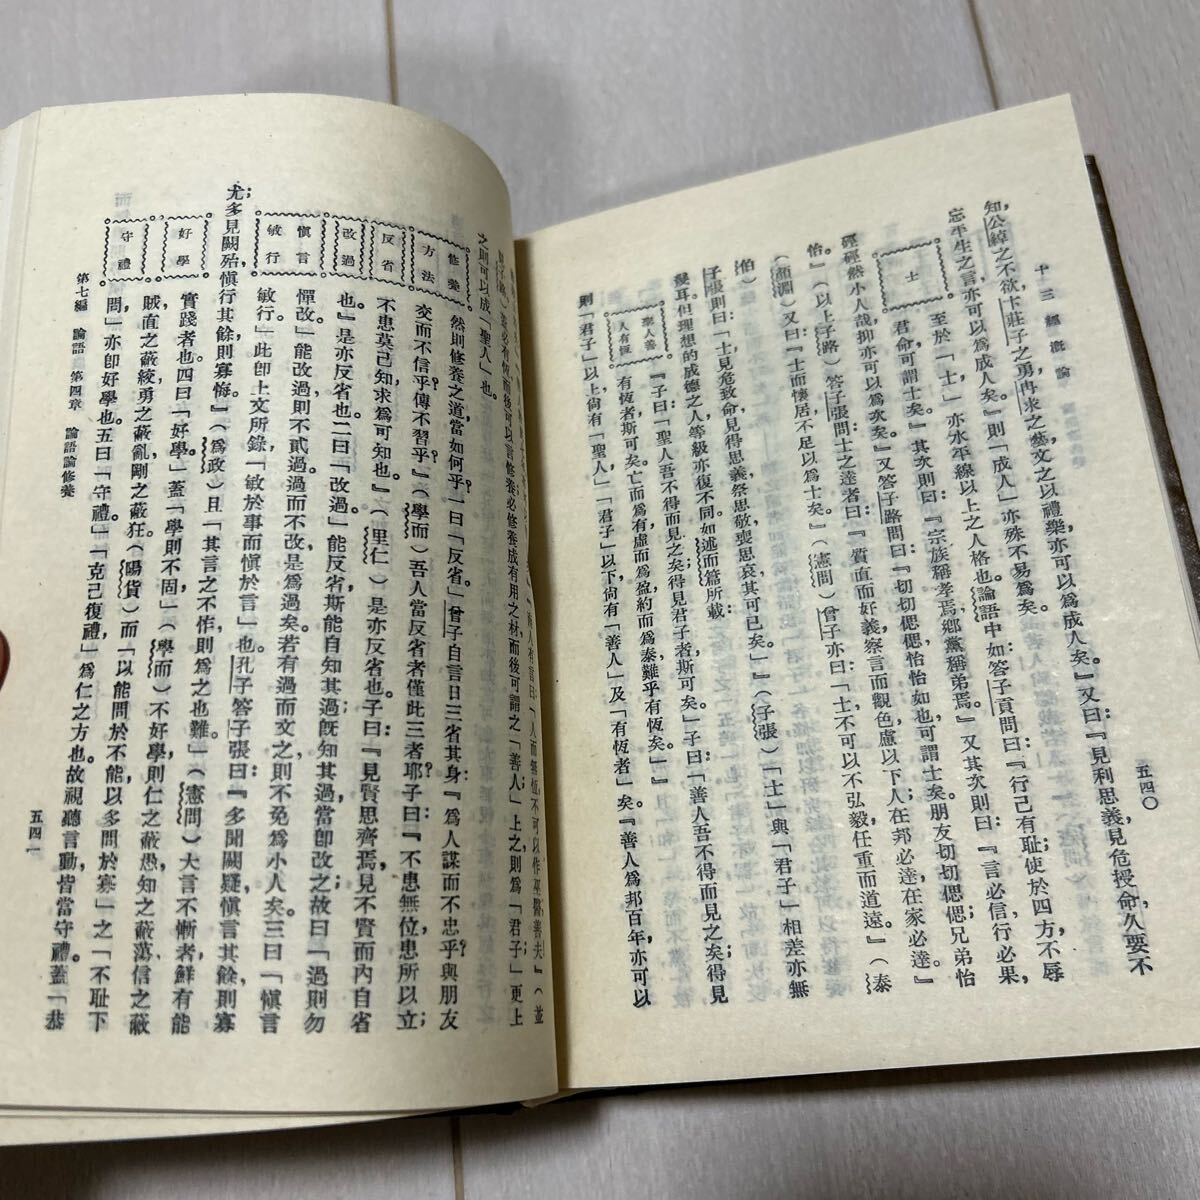 十三經概論
五四〇
知公綽之不欲卞莊子之勇冉求之藝文之以禮樂亦可以爲成人矣。』又曰：『見利思義見危授命久要不
忘平生之言亦可以爲成人矣。』則「成人」亦殊不易爲矣。
士
至於「士」亦水平線以上之人格也論語中如答子貢問曰：『行己有耻使於四方不辱
君命可謂士矣。』其次則曰：『宗族稱孝焉鄉黨稱弟焉。』又其次則曰：『言必信行必果，
硜硜然小人哉抑亦可以爲次矣。』又答子路問曰：『切切偲偲怡怡如也可謂士矣。朋友切切偲偲兄弟怡
怡。』（以上子路）答子張問士之達者曰：『質直而好義察言而觀色慮以下人在邦必達在家必達。』
（顏淵）又曰：『士而懷居不足以爲士矣。』（憲問）曾子亦曰：『士不可以不弘毅任重而道遠。』（泰
伯）子張則曰：『士見危致命見得思義祭思敬喪思哀其可已矣。』（子張）「士」與「君子」相差亦無
幾耳。但理想的成德之人等級亦復不同。如述而篇所載
聖人善人有恆
『子曰：「聖人吾不得而見之矣得見君子者斯可矣。」子曰：「善人吾不得而見之矣；得見
有恆者斯可矣。亡而爲有虛而爲盈約而爲泰難乎有恆矣。」』
則「君子」以上尙有「聖人」「君子」以下尙有「善人」及「有恆者」矣。『善人爲邦百年，亦可以
人有言曰：「人而無恆不可以作巫醫善夫』（並
有恆而後可以言修養必修養成有用之材而後可謂之「善人」上之則爲「君子」更上
之則可以成「聖人」也。
修養方法
然則修養之道當如何乎？一曰「反省」曾子自言日三省其身：『爲人謀而不忠乎？與朋友
交而不信乎？傳不習乎？』（學而）吾人當反省者僅此三者耶？子曰：『不患無位患所以立；
反省
不患莫己知求爲可知也。』（里仁）是亦反省也。子曰：『見賢思齊焉，見不賢而內自省
也。』是亦反省也。二曰「改過」能反省斯能自知其過旣知其過當卽改之故曰『過則勿
改過
憚改。』能改過則不貳過而不改是爲過矣若有過而文之則不免爲小人矣。三曰「愼言
愼言敏行
敏行。』此卽上文所錄「敏於事而愼於言」也。孔子答子張曰：『多聞闕疑愼言其餘，則寡
尤；多見闕殆愼行其餘則寡悔。』（爲政）且「其言之不怍則爲之也難」（憲問）大言不慚者鮮有能
好學
實踐者也。四曰「好學。」蓋「學則不固」（學而）不好學則仁之蔽愚知之蔽蕩信之蔽
賊直之蔽絞勇之蔽亂剛之蔽狂。（陽貨）而「以能問於不能以多問於寡」之「不耻下
守禮
問」亦卽好學也。五曰「守禮」「克己復禮」爲仁之方也。故視聽言動，皆當守禮。蓋「恭
第七編　論語　第四章　論語論修養
五四一